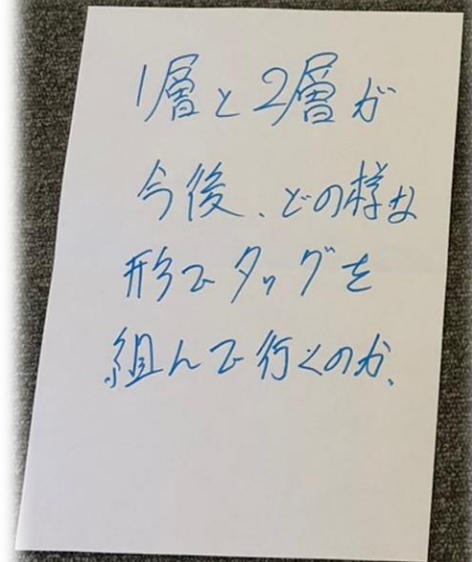 1層と2層が
今後、どの様な
形でタッグを
組んで行くのか、